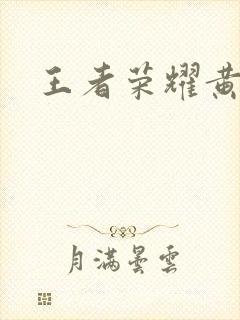 王者荣耀黄
月满昙雲